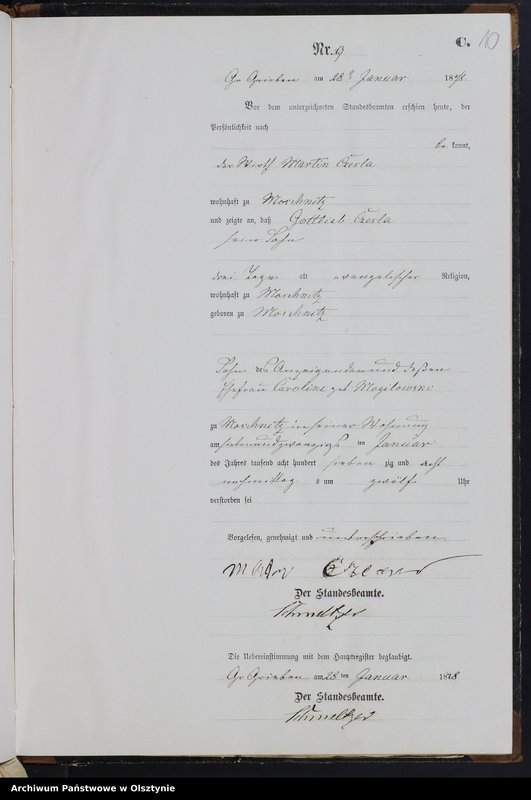 C. 10
Nr. 9
Gr. Grieben am 28 t Januar 1878.
Vor dem unterzeichneten Standesbeamten erschien heute, der
Persönlichkeit nach
be kannt,
der Wirth Martin
wohnhaft zu Moschnitz
und zeigte an, daß Gottlieb
sein Sohn
drei Tage alt evangelischer Religion,
wohnhaft zu Moschnitz
geboren zu Moschnitz
Sohn des Anzeigenden und dessen
Ehefrau Caroline geb.
zu Moschnitz in seiner Wohnung
am siebenundzwanzigs ten Januar
des Jahrs tausend acht hundert sieben zig und acht
nachmittag s um zwölf Uhr
verstorben sei
Vorgelesen, genehmigt und unterschrieben
Der Standesbeamte.
Schmeltzer
Die Uebereinstimmung mit dem Hauptregister beglaubigt.
Gr Grieben am 28 ten Januar 1878
Der Standesbeamte.
Schmeltzer
Archiwum Państwowe w Olsztynie